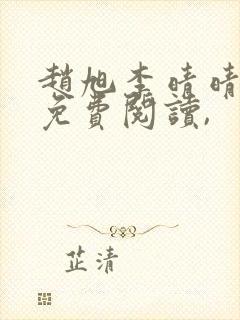 趙旭李晴晴
免費閱讀,
芷清